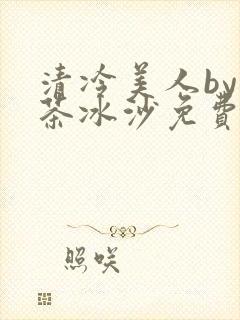 清冷美人by
茶冰沙免費
照咲